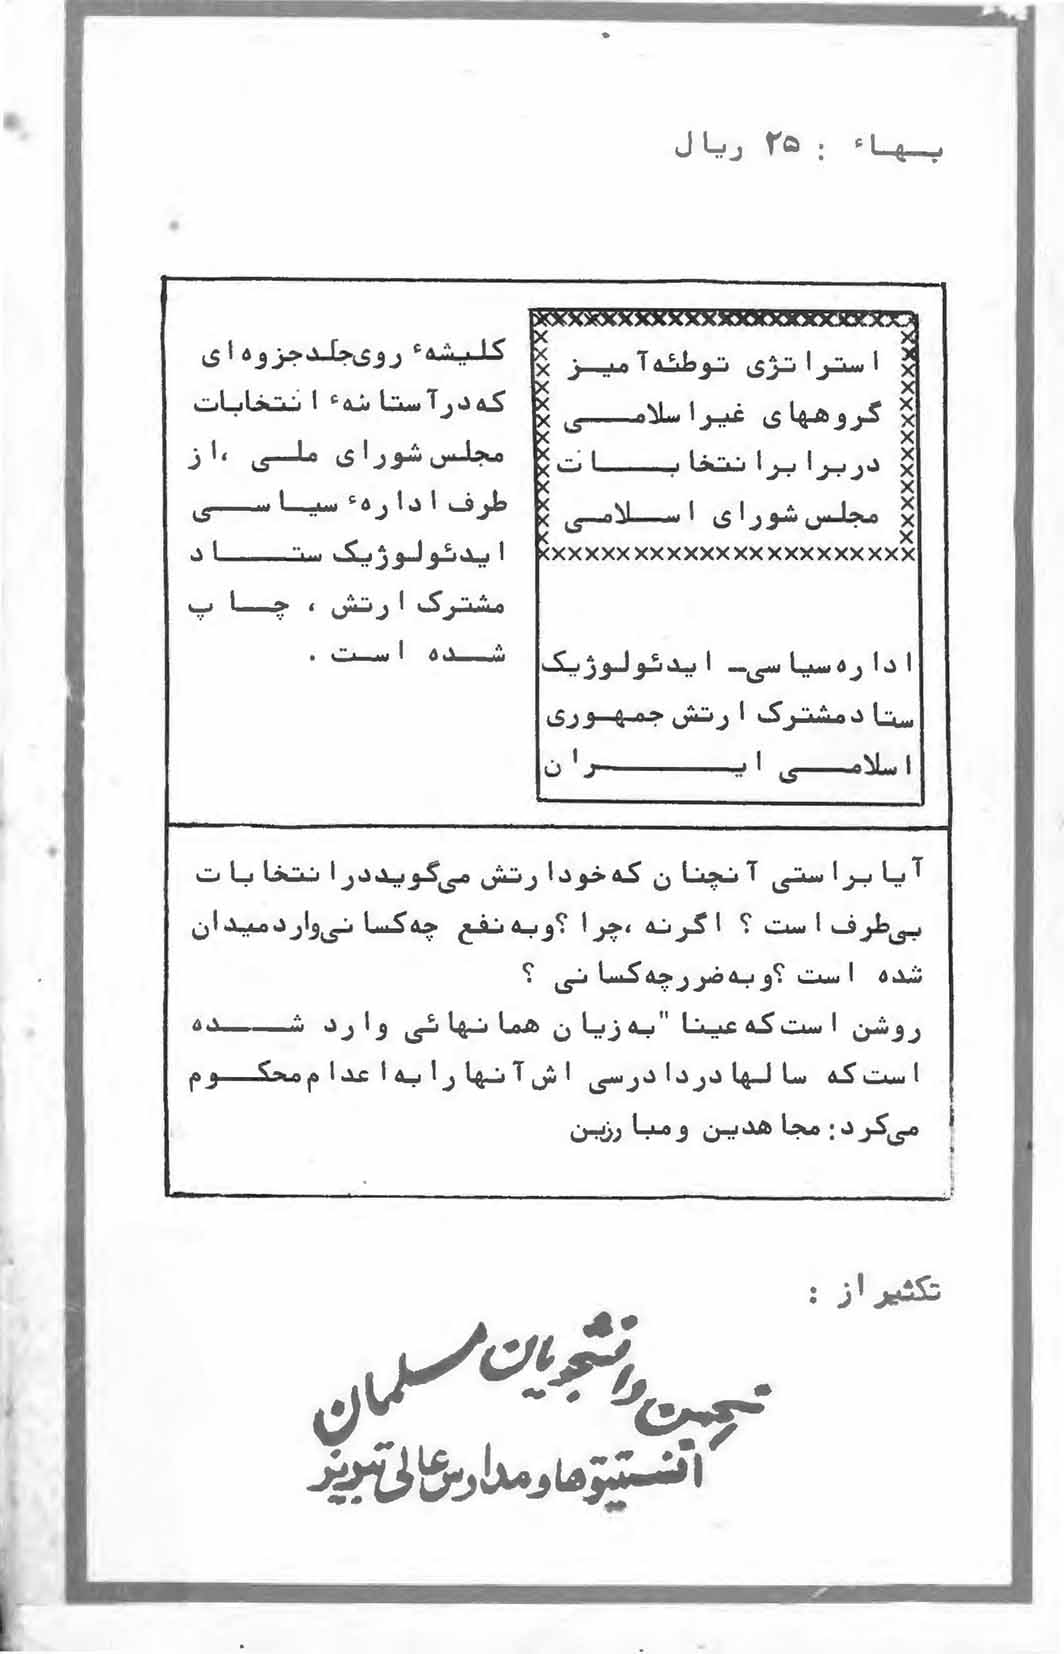 بهاء : ۲۵ ریال
استراتژی توطئه‌آمیز
گروههای غیراسلامی
دربرابرانتخابات
مجلس شورای اسلامی
اداره سیاسی - ایدئولوژیک
ستاد مشترک ارتش جمهوری
اسلامی ایران
کلیشهٔ روی جلد جزوه‌ای
که درآستانهٔ انتخابات
مجلس شورای ملی ، از
طرف ادارهٔ سیاسی
ایدئولوژیک ستاد
مشترک ارتش ، چاپ
شده است .
آیا براستی آنچنان که خود ارتش می‌گوید در انتخابات
بی‌طرف است ؟ اگر نه ، چرا ؟ و به نفع چه کسانی وارد میدان
شده است ؟ و به ضرر چه کسانی ؟
روشن است که عینا" به زیان همانهائی وارد شده
است که سالها در دادرسی اش آنها را به اعدام محکوم
می‌کرد : مجاهدین و مبارزین
تکثیر از :
انجمن دانشجویان مسلمان
انستیتوها و مدارس عالی تبریز